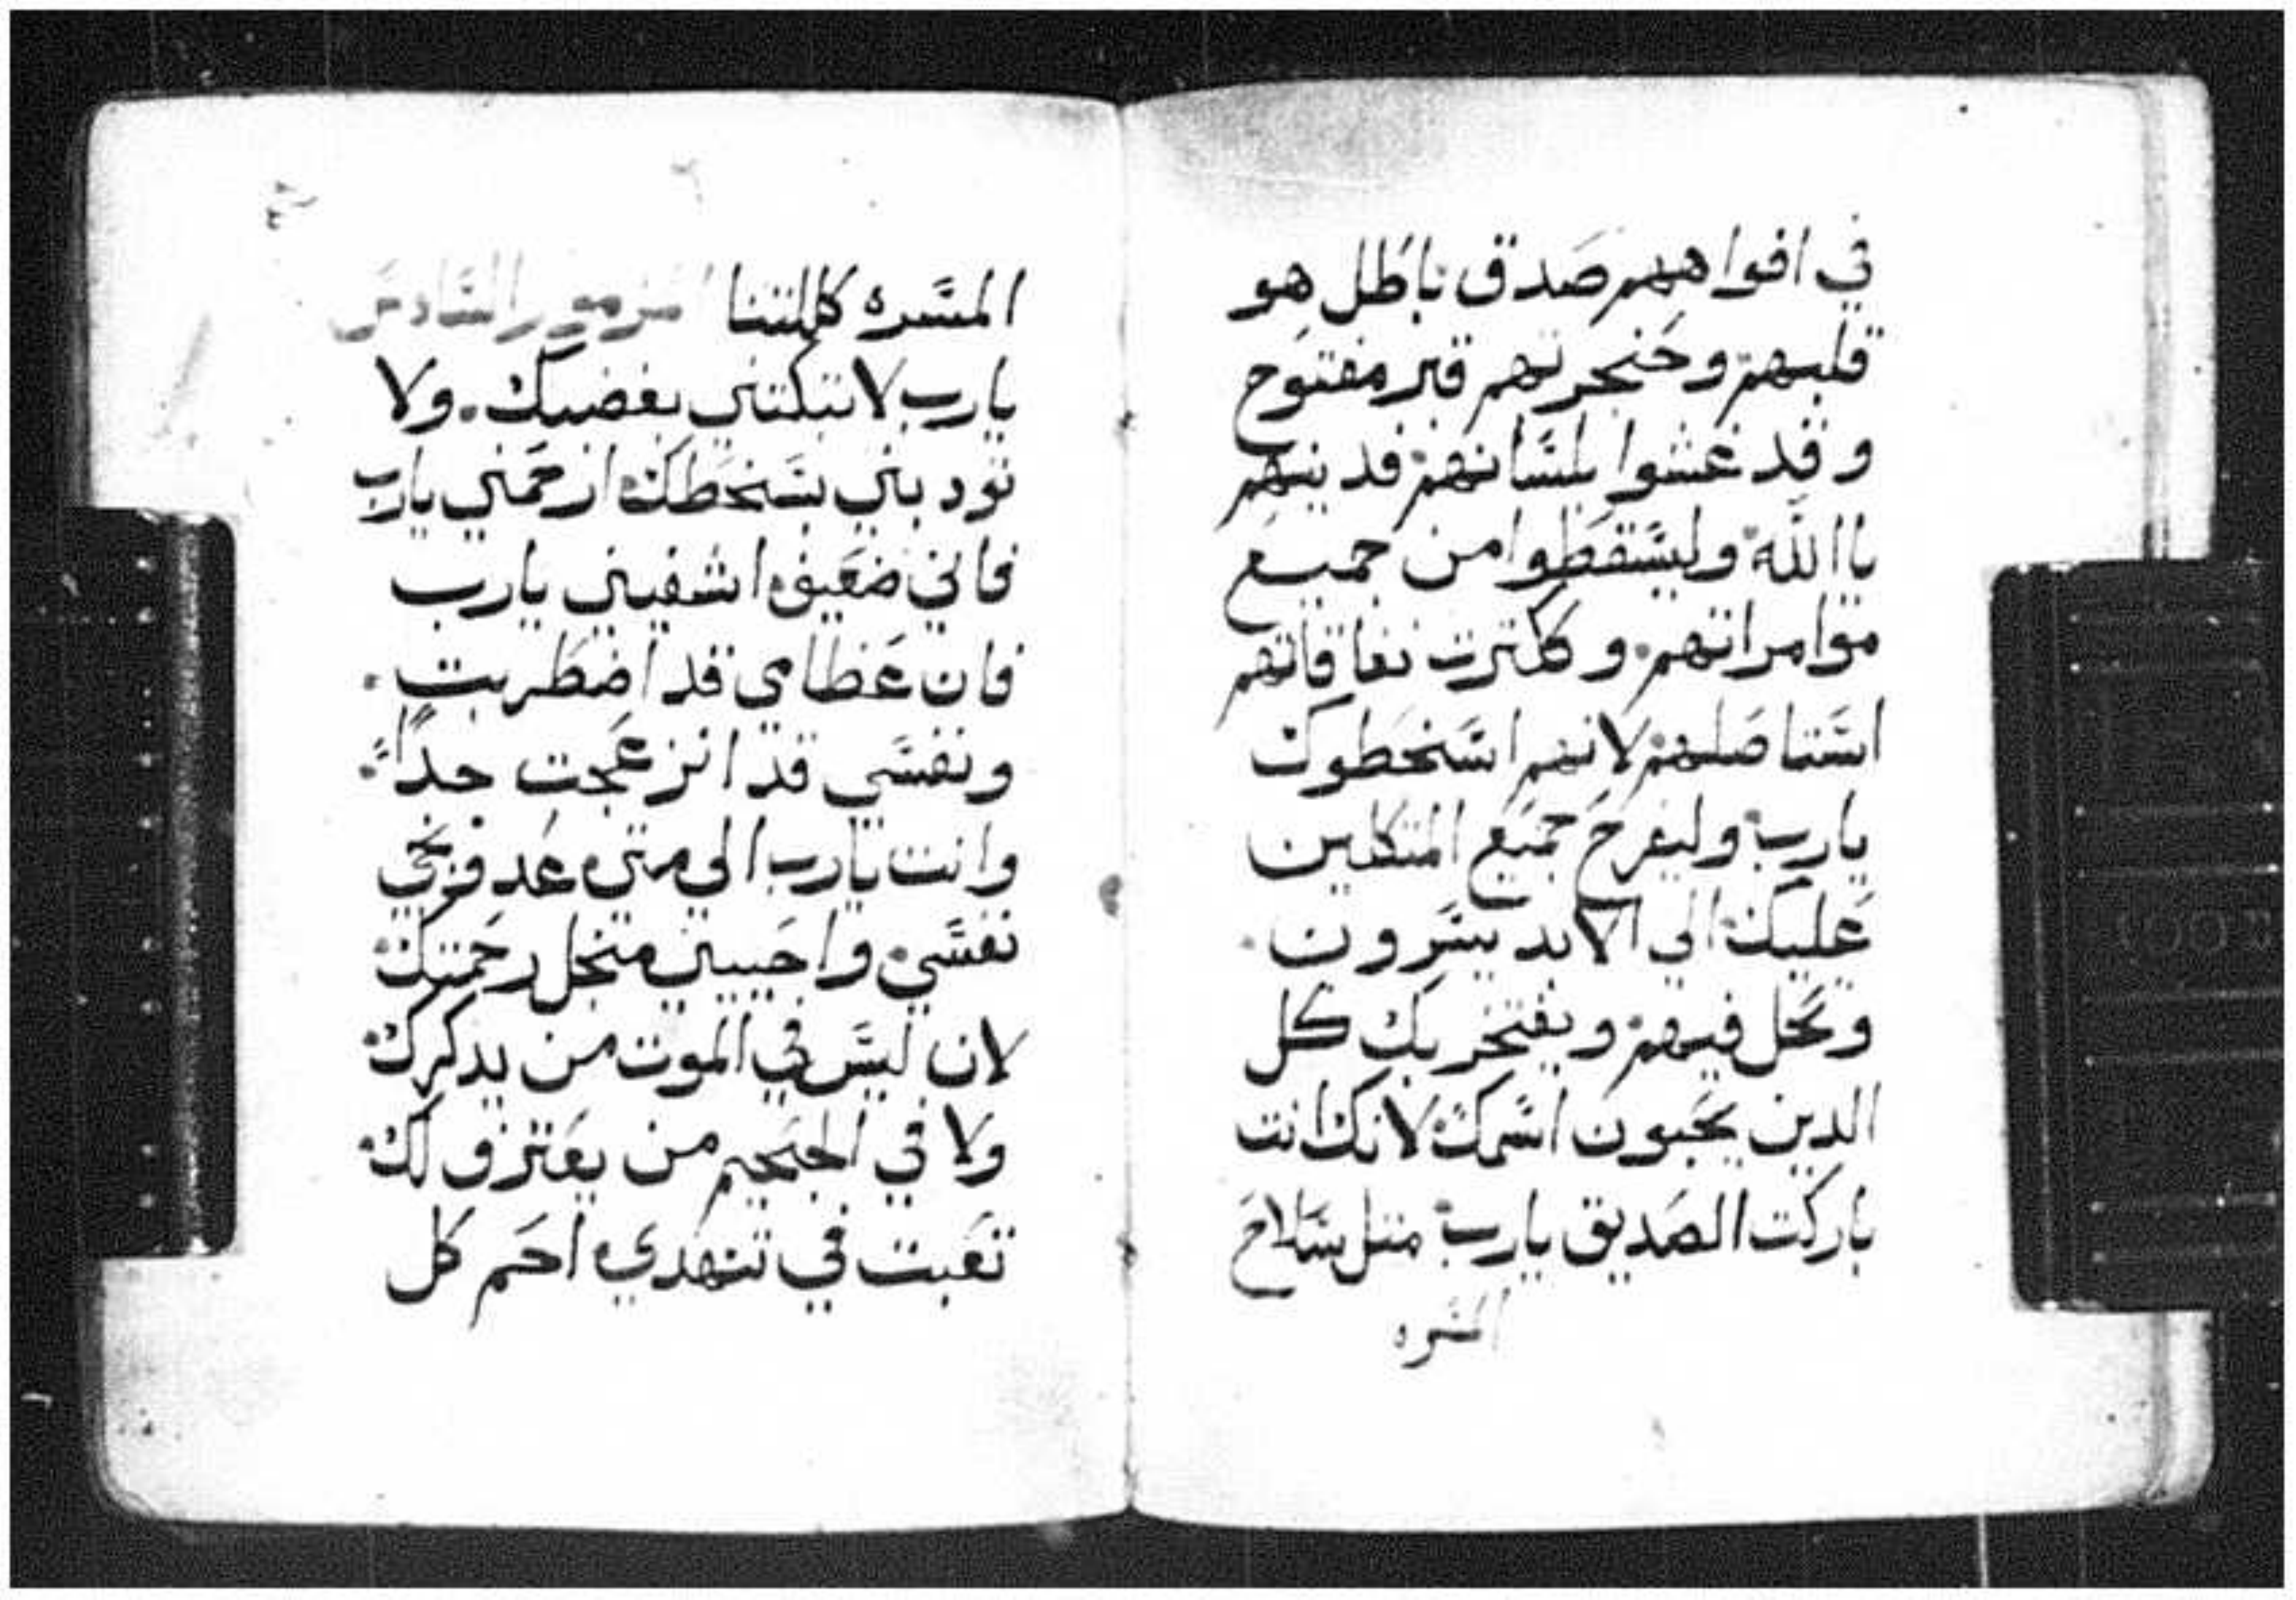 في افواههم صدق باطل هو
قلبهم وحنجرتهم قبر مفتوح
وقد غشوا بلسانهم فدينهم
ياالله وليسقطوا من جميع
موامراتهم وككترت نفاقاتهم
استاصلهم لانهم اسخطوك
يارب وليفرح جميع المتكلين
عليك الي الابد يسرون
وتحل فيهم ويفتخر بك كل
الدين يحبون اسمك لانك انت
باركت الصديق يارب متل سلاح
المسره
المسره كللتنا مزمور السادس
يارب لا تبكتني بغضبك ولا
تودبني بسخطك ارحمني يارب
فاني ضعيف اشفيني يارب
فان عظامي قد اضطربت
ونفسي قد انزعجت جداً
وانت يارب الي متي عد فنجي
نفسي واحييني منجل رحمتك
لان ليس في الموت من يدكرك
ولا في الجحيم من يعترف لك
تعبت في تنهدي احم كل